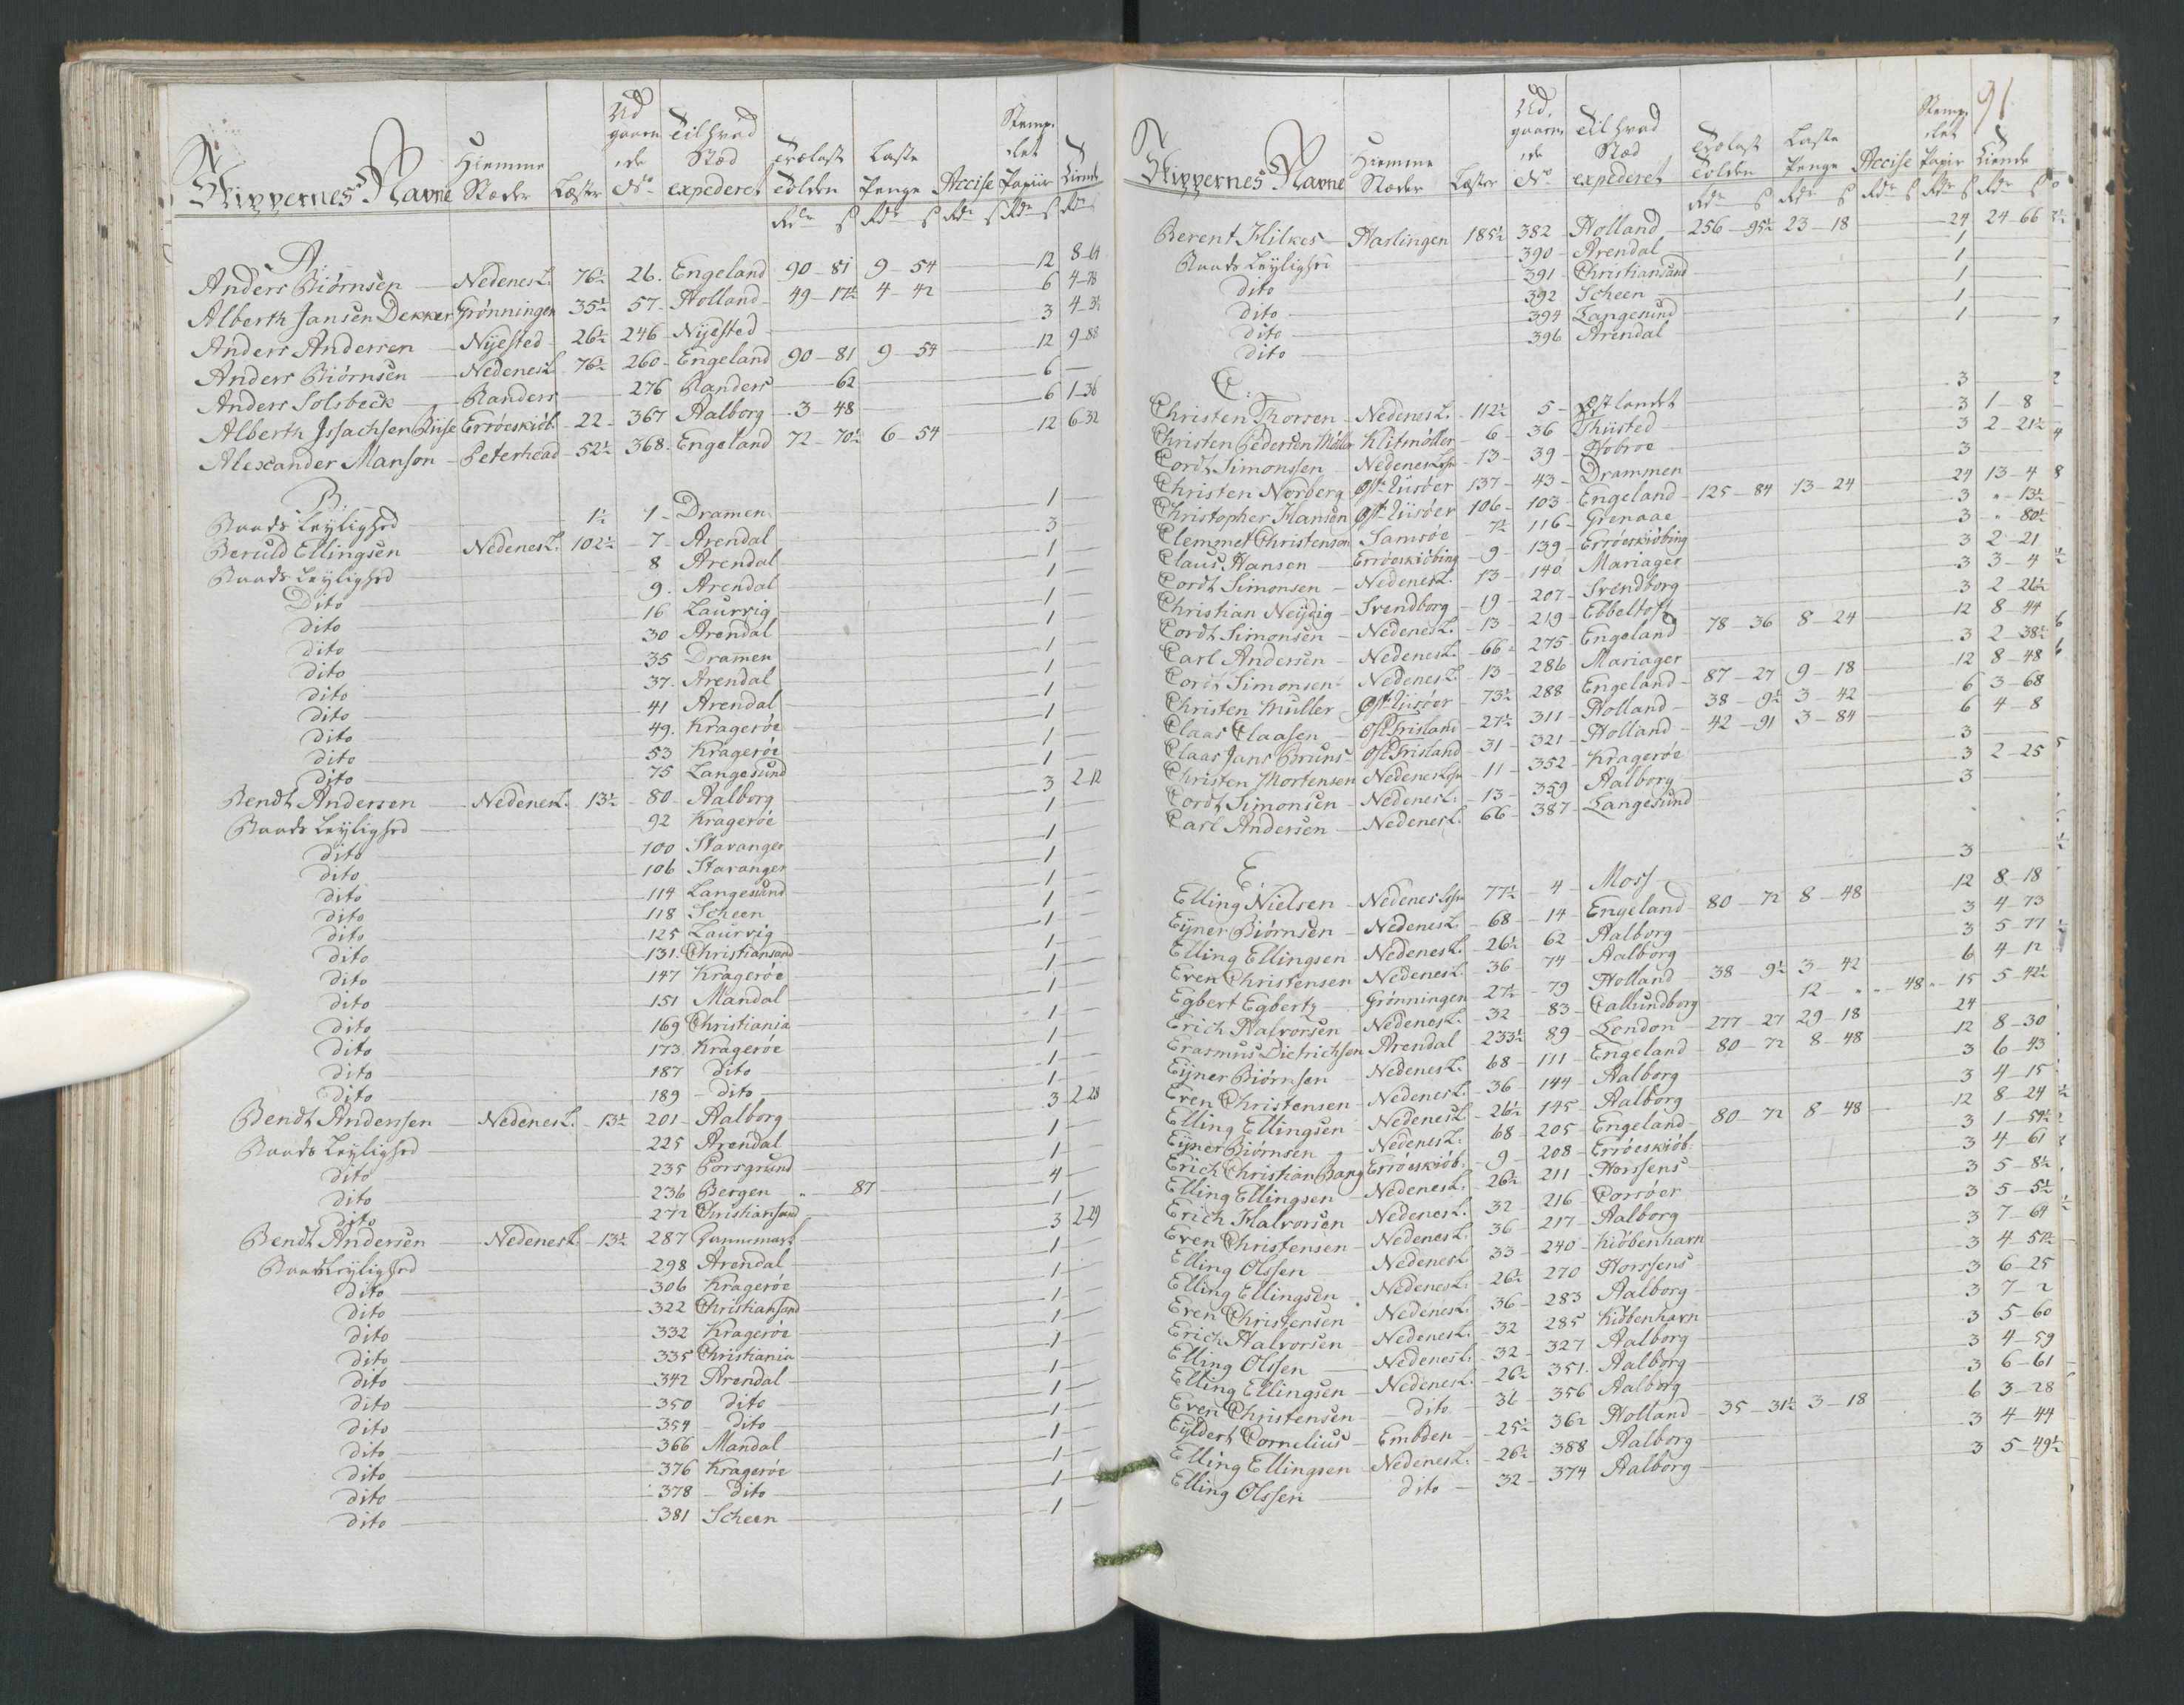 Skippernes Navne Hiemme Stæder Læster Udgaaende No Til hvad Stæd expederet Trælast Tolden Laste Penge Accise Stemplet Papiir Tiende
Rdr ß Rdr ß Rdr ß Rdr ß Rdr ß
A.
Anders Biørnsen Nedenesl. 76½ 26. Engeland 90-81 9-54 12 8-64
Alberth Jansen Dekker Grønningen 35½ 57. Holland 49-17½ 4-42 6 4-78
Anders Andersen Nyested 26½ 246 Nyested 3 4-32
Anders Biørnsen Nedenesl. 76½ 260 Engeland 90-81 9-54 12 9-88
Anders Solsbeck Randers 276 Randers 62 6
Alberth Issachsen Riise Erröeskiöb. 22 367 Aalborg 3-48 6 1-36
Alexander Manson Peterhead 52½ 368. Engeland 72-70½ 6-54 12 6-32
B.
Baads Leylighed 1½ 1 Dramen 1
Beruld Ellingsen Nedenesl. 102½ 7 Arendal 3
Baads Leylighed 8 Arendal 1
Dito 9. Arendal 1
dito 16 Laurvig 1
dito 30 Arendal 1
dito 35 Dramen 1
dito 37. Arendal 1
dito 41 Arendal 1
dito 49. Kragerøe 1
dito 53 Kragerøe 1
dito 75 Langesund 1
Bendt Andersen Nedenesl. 13½ 80 Aalborg 3 2-12
Baads Leylighed 92 Kragerøe 1
dito 100 Stavanger 1
dito 106 Stavanger 1
dito 114 Langesund 1
dito 118 Scheen 1
dito 125 Laurvig 1
dito 131. Christiansand 1
dito 147 Kragerøe 1
dito 151 Mandal 1
dito 169 Christiania 1
dito 173 Kragerøe 1
dito 187 dito 1
dito 189 dito 1
Bendt Andersen Nedenesl. 13½ 201 Aalborg 3 2-28
Baads Leylighed 225 Arendal 1
dito 235 Porsgrund 1
dito 236 Bergen " 87 4
dito 272 Christiansand 1
Bendt Andersen Nedenesl. 13½ 287 Dannemark 3 2-29
Baads Leylighed 298 Arendal 1
dito 306 Kragerøe 1
dito 322 Christiansand 1
dito 332 Kragerøe 1
dito 335 Christiania 1
dito 342 Arendal 1
dito 350 dito 1
dito 354 dito 1
dito 366 Mandal 1
dito 376 Kragerøe 1
dito 378 dito 1
dito 381 Scheen 1
91
Skippernes Navne Hiemme Stæder Læster Udgaaende No Til hvad Stæd expederet Trælast Tolden Laste Penge Accise Stemplet Papiir Tiende
Rdr ß Rdr ß Rdr ß Rdr ß Rdr ß
Berent Hilkes Harlingen 185½ 382 Holland 256-95½ 23-18 24 24-66
Baads Leylighed 390 Arendal 1
dito 391 Christiansand 1
dito 392 Scheen 1
dito 394 Langesund 1
dito 396 Arendal 1
C.
Christen Thorsen Nedenesl. 112½ 5 Østlandet 3
Christen Pedersen Møller Klitmøller 6 36 Thiisted 3 1-8
Cordt Simonssen Nedenes Lehn 13 39 Hobroe 3 2-21½
Christen Norberg Øst Riisøer 137 43 Drammen 3
Christopher Hansen Øst Riisøer 106 103 Engeland 125-84 13-24 24 13-4
Clemmet Christensen Samsöe 7½ 116 Grenaae 3 " 13½
Claus Hansen Erröeskiöbing 9 139 Erröeskiöbing 3 " 80½
Cordt Simonsen Nedenesl. 13 140 Mariager 3 2-21
Christian Neydig Svendborg 19 207 Svendborg 3 3-4
Cordt Simonsen Nedenesl. 13 219 Ebbeltoft 3 2-26½
Carl Andersen Nedenesl. 66 275 Engeland 78-36 8-24 12 8-44
Cordt Simonsen Nedenesl. 13 286 Mariager 3 2-38½
Christen Muller Øst Riisøer 73½ 288 Engeland 87-27 9-18 12 8-48
Claas Claasen Ost Frisland 27½ 311 Holland 38-9½ 3-42 6 3-68
Claas Jans Bruns Ost Frisland 31 321 Holland 42-91 3-84 6 4-8
Christen Mortensen Nedenes Lehn 11 352 Kragerøe 3
Cordt Simonsen Nedenesl. 13 359 Aalborg 3 2-25
Carl Andersen Nedenesl. 66 387 Langesund 3
E.
Elling Nielsen Nedenes Lehn 77½ 4 Moss 3
Eyner Biørnsen Nedenesl. 68 14 Engeland 80-72 8-48 12 8-18
Elling Ellingsen Nedenesl. 26½ 62 Aalborg 3 4-73
Even Christensen Nedenesl. 36 74 Aalborg 3 5-77
Egbert Egberts Grönningen 27½ 79 Holland 38-9½ 3-42 6 4-12
Erich Halvorsen Nedenesl. 32 83 Callundborg 12 " " 48 15 5-42½
Erasmus Dietrichsen Arendal 233½ 89 London 277-27 29-18 24
Eyner Biørnsen Nedenesl. 68 111 Engeland 80-72 8-48 12 8-30
Even Christensen Nedenesl. 36 144 Aalborg 3 6-43
Elling Ellingsen Nedenesl. 26½ 145 Aalborg 3 4-15
Eyner Biørnsen Nedenesl. 68 205 Engeland 80-72 8-48 12 8-24
Erich Christian Bang Erröeskiöb. 9 208 Erröeskiöb. 3 1-54½
Elling Ellingsen Nedenesl. 26½ 211 Horssens 3 4-61
Erich Halvorsen Nedenesl. 32 216 Corsøer 3 5-8½
Even Christensen Nedenesl. 36 217 Aalborg 3 5-5½
Elling Olssen Nedenesl. 33 240 Kiøbenhavn 3 7-64
Elling Ellingsen Nedenesl. 26½ 270 Horssens 3 4-57½
Even Christensen Nedenesl. 36 283 Aalborg 3 6-25
Erich Halvorsen Nedenesl. 32 285 Kiøbenhavn 3 7-2
Elling Olssen Nedenesl. 32 327 Aalborg 3 5-60
Elling Ellingsen Nedenesl. 26½ 351. Aalborg 3 4-59
Even Christensen dito 36 356 Aalborg 3 6-61
Eyldert Cornelius Embden 25½ 362 Holland 35-31½ 3-18 6 3-28
Elling Ellingsen Nedenesl. 26½ 388 Aalborg 3 4-44
Elling Olssen dito 32 374 Aalborg 3 5-49½